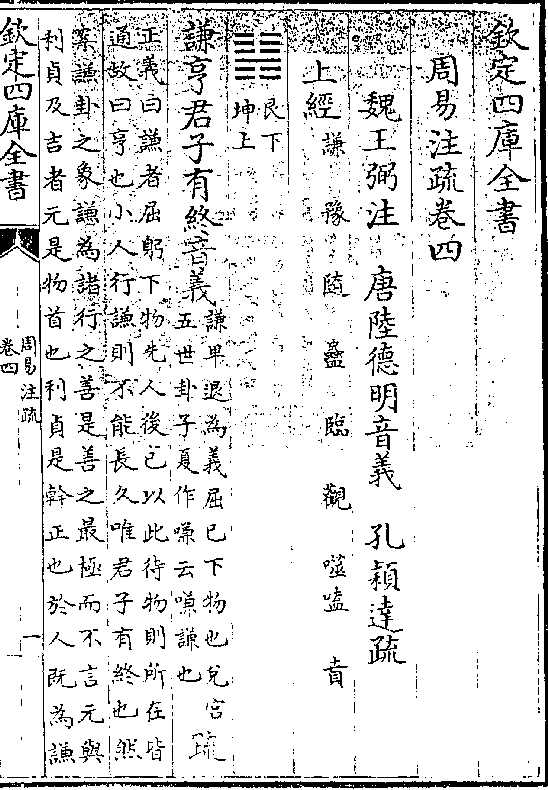 欽定四庫全書
周易注疏卷四
魏王弼注 唐陸德明音義 孔穎達疏
上經 謙 豫 隨 蠱 臨 觀 噬嗑 賁
艮下
坤上
謙亨君子有終音義謙卑退為義屈已下物也兌宫
五世卦子夏作嗛云嗛謙也疏
正義曰謙者屈躬下物先人後已以此待物則所在皆
通故曰亨也小人行謙則不能長久唯君子有終也然
案謙卦之象謙為諸行之善是善之最極而不言元與
利貞及吉者元是物首也利貞是幹正也於人既為謙
欽定四庫全書
周易注疏
卷四
一